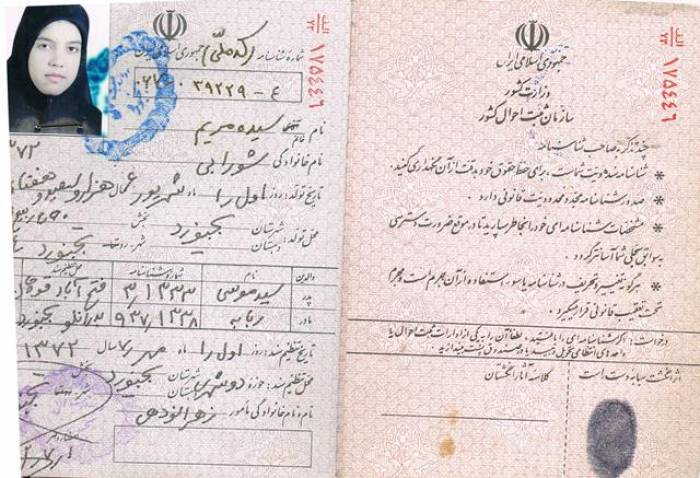 جمهوری اسلامی ایران
شماره شناسنامه (کد ملی)
نام سیده مریم
نام خانوادگی شورابی
تاریخ تولد: روز اول ماه شهریور سال هزار و سیصد و هفتاد
۱۳۷۲
محل تولد: شهرستان بجنورد بخش
دهستان شهر - روستا بجنورد
والدین نام شماره شناسنامه محل تنظیم سند
پدر سید موسی ۳/۱۳۳۳
مادر ۹۳۷/۱۳۳۸ بجنورد
تاریخ تنظیم سند: روز اول ماه مهر سال ۱۳۷۲
محل تنظیم سند: حوزه دو شهرستان بجنورد
نام و نام خانوادگی مأمور:
الف/۷۲ ۱۷۵۴۴۶
جمهوری اسلامی ایران
وزارت کشور
سازمان ثبت احوال کشور
چند تذکر به صاحب شناسنامه
* شناسنامه سند هویت شماست، برای حفظ حقوق خود بدقت از آن نگهداری کنید.
* صدور شناسنامه مجدد محدودیت قانونی دارد.
* مشخصات شناسنامه‌ای خود را بخاطر بسپارید تا در موقع ضرورت دسترسی
به سوابق سجلی شما آسانتر گردد.
* هرگونه تغییر و تحریف در شناسنامه یا سوء استفاده از آن جرم است و مجرم
تحت تعقیب قانونی قرار میگیرد.
درخواست: اگر شناسنامه‌ای را یافتید، لطفاً آن را به یکی از ادارات ثبت احوال یا
واحدهای انتظامی تحویل دهید یا در صندوق پست بیندازید.
اثر انگشت سبابه دست راست
کلاسه آثار انگشتان
۱۷۵۴۴۶